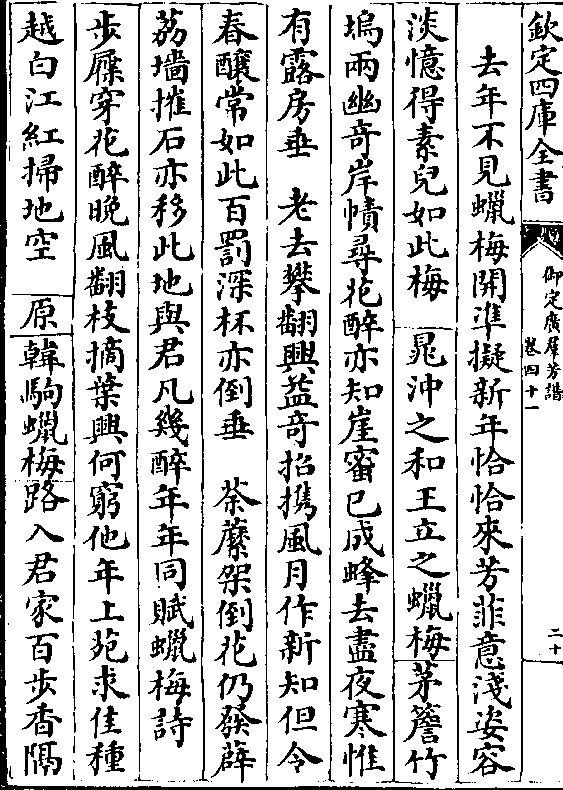 欽定四庫全書
御定廣羣芳譜
卷四十一
二十
去年不見蠟梅開準擬新年恰恰來芳菲意淺姿容
淡憶得素兒如此梅　晁沖之和王立之蠟梅　茅簷竹
塢兩幽奇岸幘尋花醉亦知崖蜜已成蜂去盡夜寒惟
有露房垂　老去攀翻興葢奇招携風月作新知但令
春釀常如此百罰深杯亦倒垂　荼蘼架倒花仍發薜
荔墻摧石亦移此地與君凡幾醉年年同賦蠟梅詩
步屧穿花醉晚風翻枝摘葉興何窮他年上苑求佳種
越白江紅掃地空　原韓駒蠟梅路入君家百步香隔